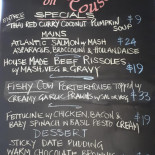 ENTREE SPECIALS
THAI RED CURRY COCONUT PUMPKIN SOUP $9
MAINS
ATLANTIC SALMON W MASH $24
ASPARAGUS, BROCCOLINI & HOLLANDAISE
HOUSE MADE BEEF RISSOLES
W MASH, VEG & GRAVY $19
FISHY COW PORTERHOUSE TOPPED W
CREAMY GARLIC PRAWNS $33
FETTUCINE W CHICKEN, BACON &
BABY SPINACH W BASIL PESTO CREAM $19
DESSERT
STICKY DATE PUDDING
WARM CHOCOLATE